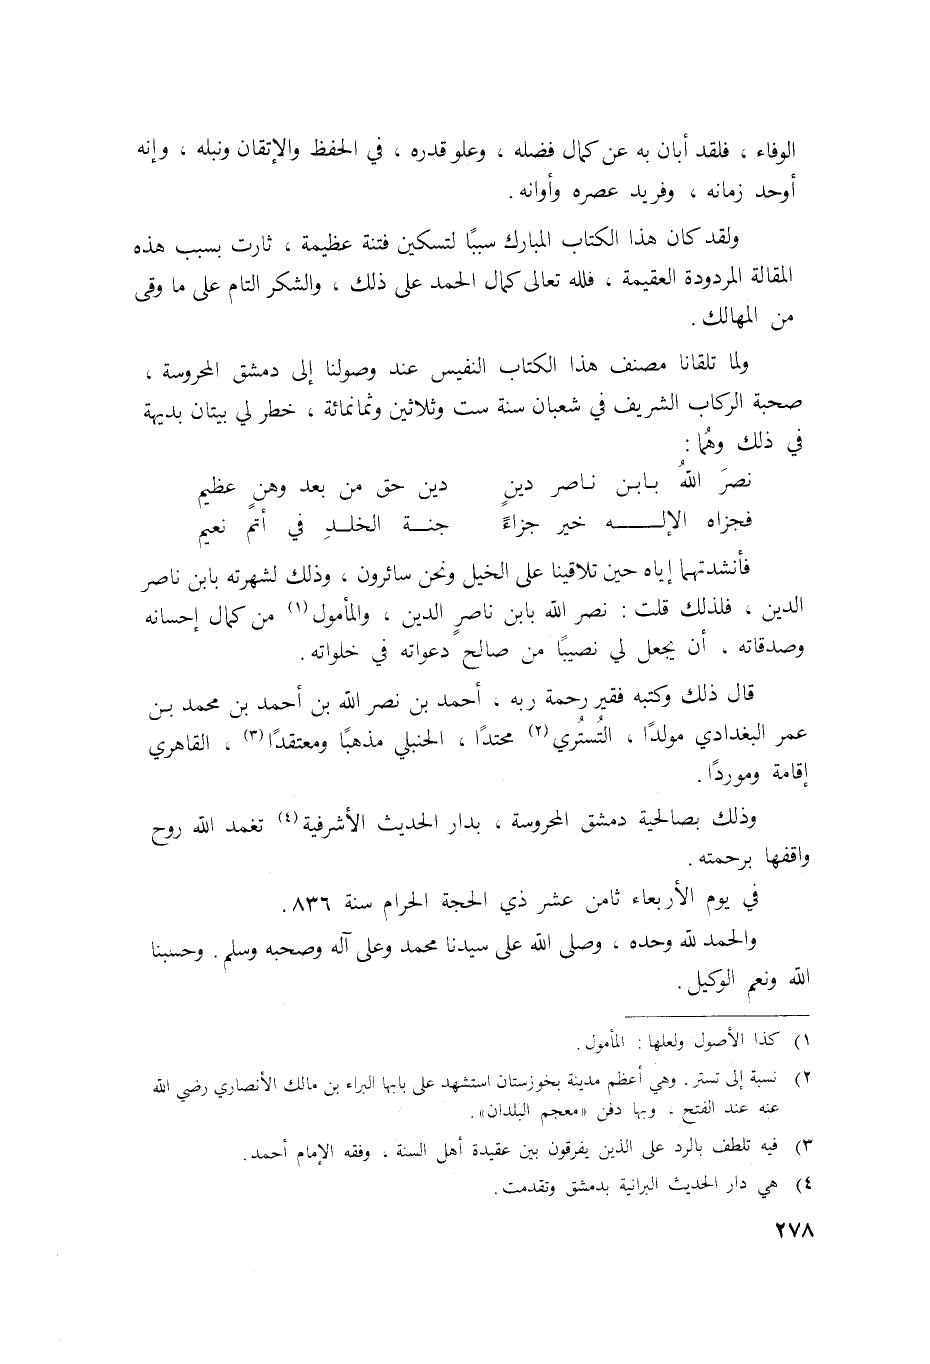 الوفاء ، فلقد أبان به عن كمال فضله ، وعلو قدره ، في الحفظ والإتقان ونبله ، وإنه
أوحد زمانه ، وفريد عصره وأوانه .
ولقد كان هذا الكتاب المبارك سببًا لتسكين فتنة عظيمة ، ثارت بسبب هذه
المقالة المردودة العقيمة ، فلله تعالى كمال الحمد على ذلك ، والشكر التام على ما وقى
من المهالك .
ولما تلقانا مصنف هذا الكتاب النفيس عند وصولنا إلى دمشق المحروسة ،
صحبة الركاب الشريف في شعبان سنة ست وثلاثين وثمانمائة ، خطر لي بيتان بديهة
في ذلك وهُما :
نصرَ اللهُ بـابـن نـاصر دينٍ دين حق من بعد وهنٍ عظيم
فجزاه الإلـــــــه خير جزاءً جنـــة الخلـدِ في أتم نعيم
فأنشدتهما إياه حين تلاقينا على الخيل ونحن سائرون ، وذلك لشهرته بابن ناصر
الدين ، فلذلك قلت : نصر الله بابن ناصرٍ الدين ، والمأمول(١) من كمال إحسانه
وصدقاته ، أن يجعل لي نصيبًا من صالح دعواته في خلواته .
قال ذلك وكتبه فقير رحمة ربه ، أحمد بن نصر الله بن أحمد بن محمد بـن
عمر البغدادي مولدًا ، التُستُري(٢) محتدًا ، الحنبلي مذهبًا ومعتقدًا(٣) ، القاهري
إقامة وموردًا .
وذلك بصالحية دمشق المحروسة ، بدار الحديث الأشرفية(٤) تغمد الله روح
واقفها برحمته .
في يوم الأربعاء ثامن عشر ذي الحجة الحرام سنة ٨٣٦ .
والحمد لله وحده ، وصلى الله على سيدنا محمد وعلى آله وصحبه وسلم . وحسبنا
الله ونعم الوكيل .
١) كذا الأصول ولعلها : المأمول .
٢) نسبة إلى تستر . وهي أعظم مدينة بخوزستان استشهد على بابها البراء بن مالك الأنصاري رضي الله
عنه عند الفتح ، وبها دفن «معجم البلدان» .
٣) فيه تلطف بالرد على الذين يفرقون بين عقيدة أهل السنة ، وفقه الإمام أحمد .
٤) هي دار الحديث البرانية بدمشق وتقدمت .
٢٧٨